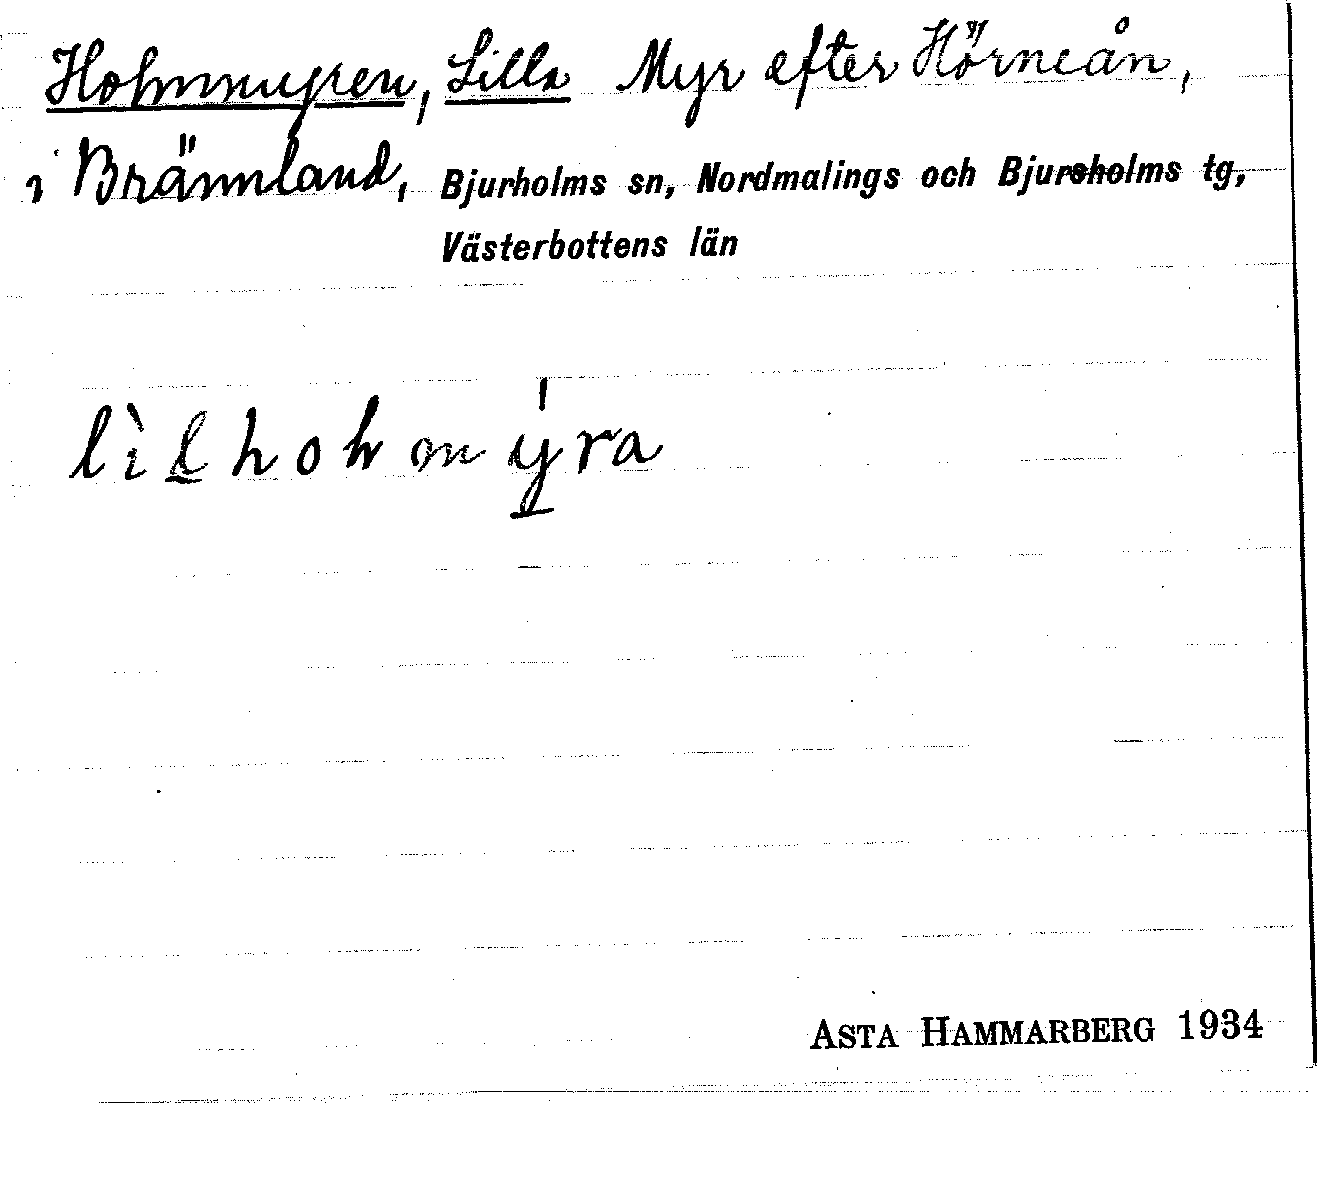 Holmmyren, Lilla Myr efter Hörneån,
i Brännland, Bjurholms sn, Nordmalings och Bjurholms tg,
Västerbottens län
ASTA HAMMARBERG 1934